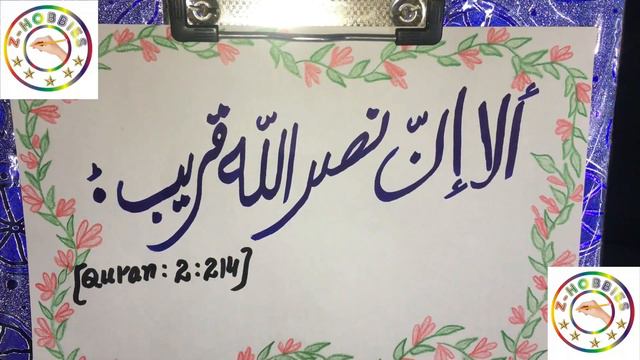 Z-HOBBIES
ألا إنّ نصر اللّه قريب :
[Quran: 2:214]
Z-HOBBIES